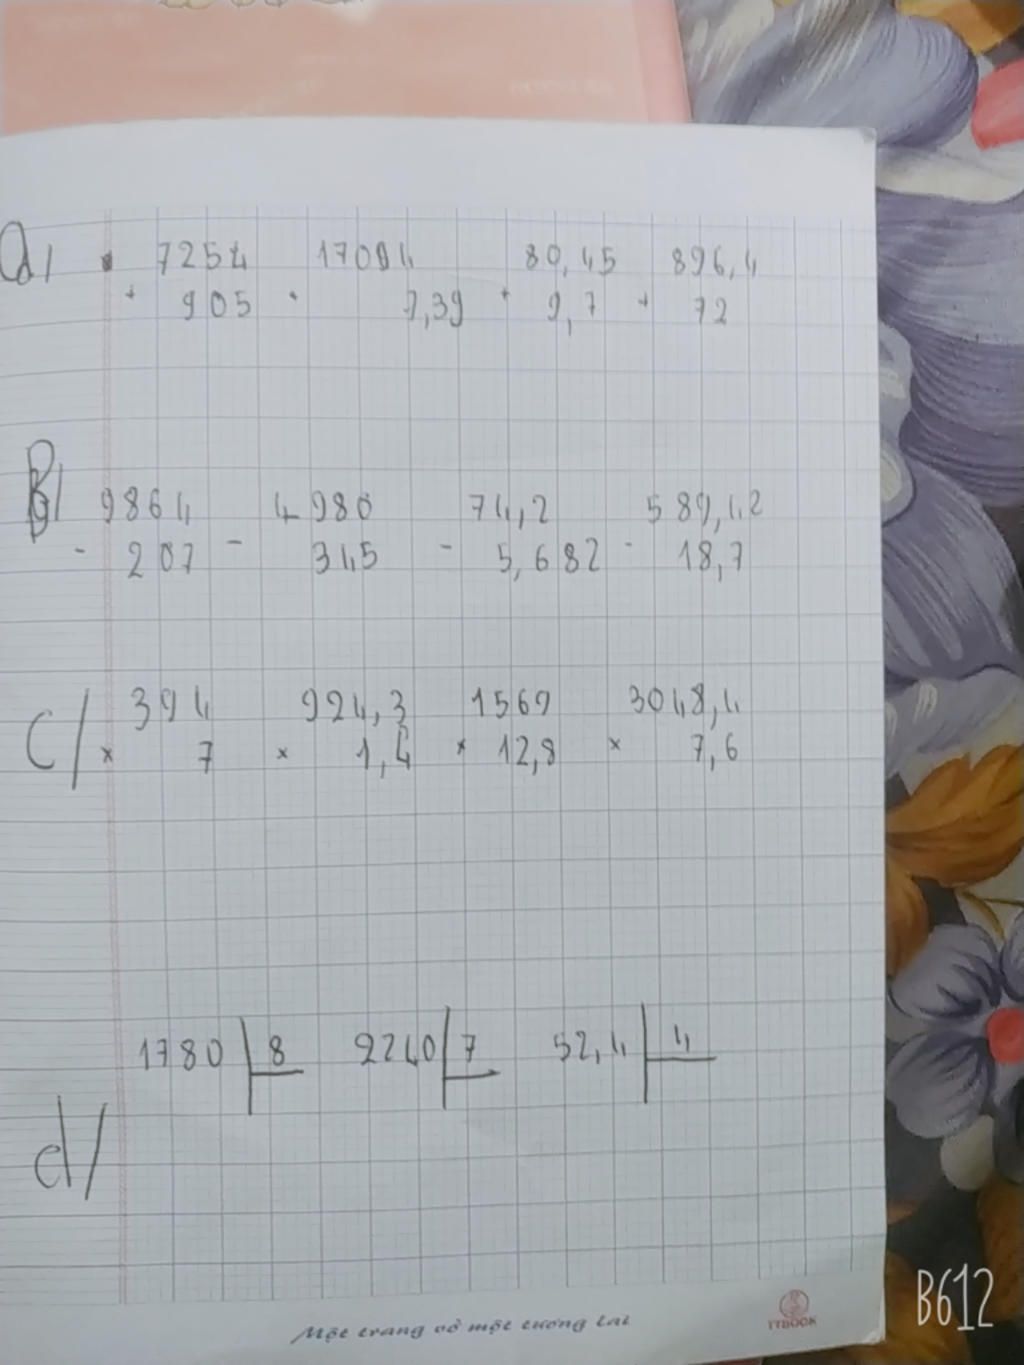 a/ 7254 17094 80,45 896,4
+ 905 + 7,39 + 9,7 + 72
B/ 9864 4980 74,2 589,42
- 207 - 345 - 5,682 - 18,7
C/ 394 924,3 1569 3048,4
× 7 × 1,4 × 12,8 × 7,6
1780 8 2240 7 52,4 4
d/
Một trang vở một tương lai
TTBOOK
B612